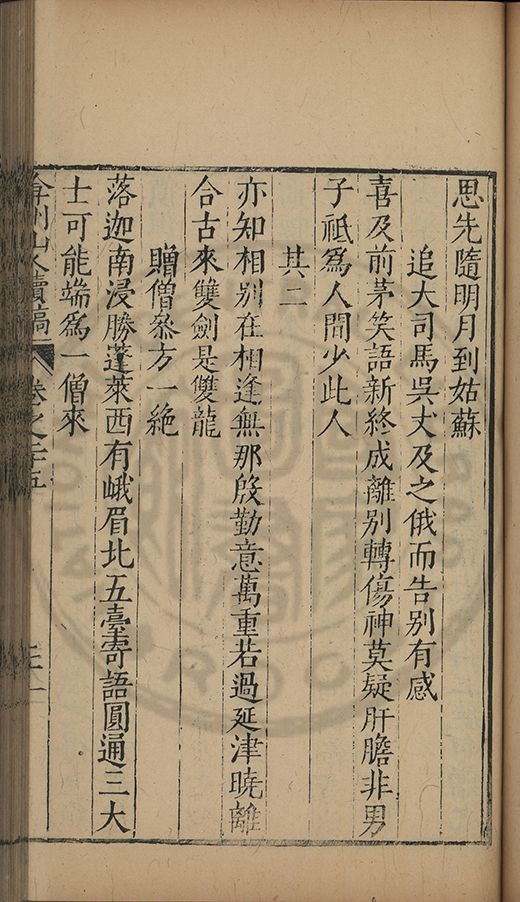 思先隨明月到姑蘇
追大司馬吳丈及之俄而告別有感
喜及前茅笑語新終成離別轉傷神莫疑肝膽非男
子祗為人間少此人
其二
亦知相別在相逢無那殷勤意萬重若過延津曉離
合古來雙劍是雙龍
贈僧叅方一絶
落迦南浸勝蓬萊西有峨眉北五臺寄語圓通三大
士可能端為一僧來
弇州山人續稿 卷之二十五